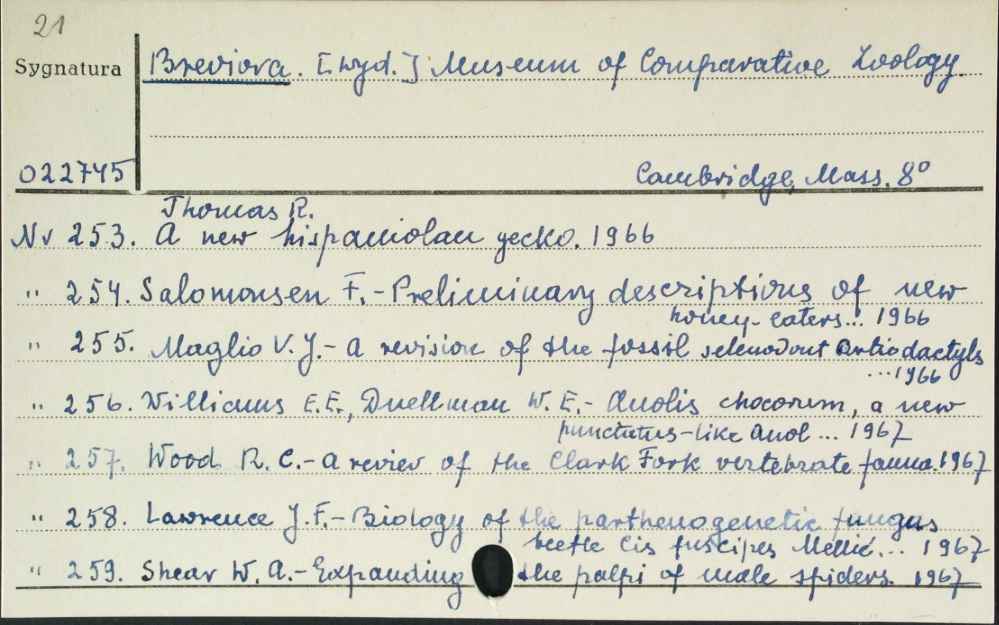 21
Sygnatura
Breviora. [wyd.] Museum of Comparative Zoology
022745
Cambridge, Mass. 8°
Thomas R.
Nr 253. A new hispaniolan gecko. 1966
" 254. Salomonsen F. - Preliminary descriptions of new
honey-eaters... 1966
" 255. Maglio V. J. - a revision of the fossil selenodont artiodactyls
...1966
" 256. Williams E. E., Duellman W. E. - Anolis chocorum, a new
punctatus-like anol... 1967
" 257. Wood R. C. - a reviev of the Clark Fork vertebrate fauna. 1967
" 258. Lawrence J. F. - Biology of the parthenogenetic fungus
beetle Cis fuscipes Mellié... 1967
" 259. Shear W. A. - Expanding the palpi of male spiders. 1967